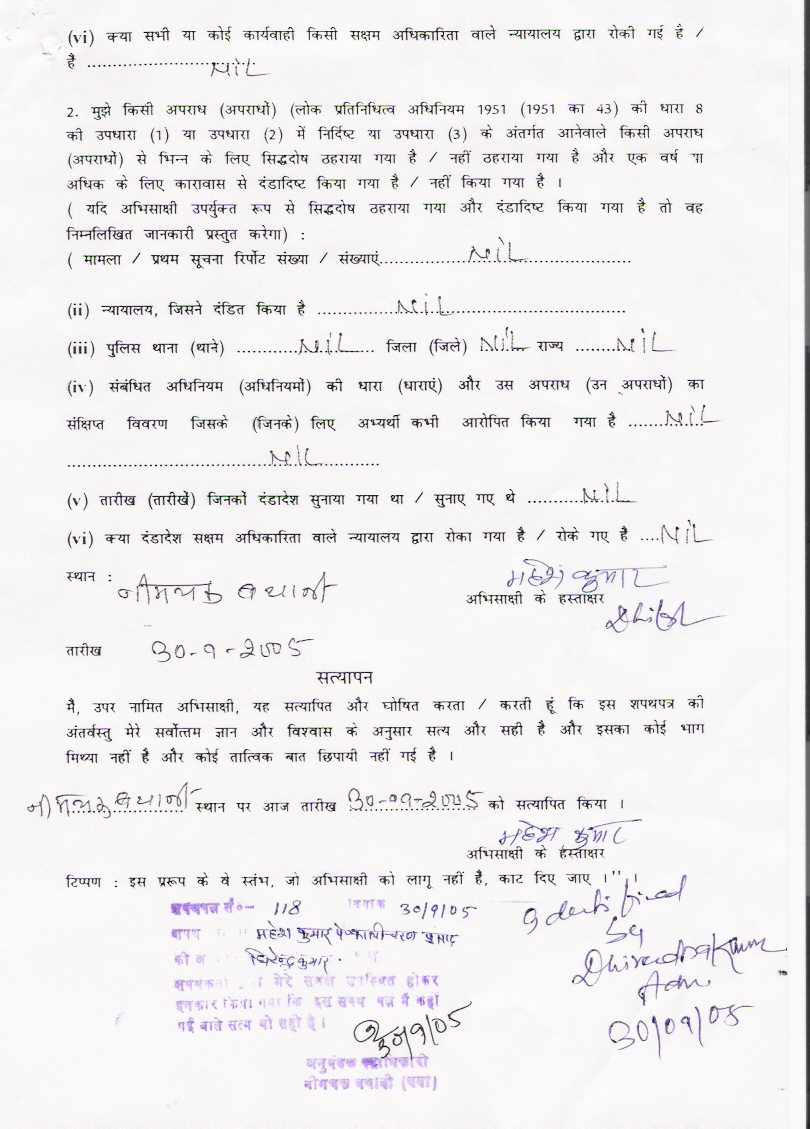 (vi) क्या सभी या कोई कार्यवाही किसी सक्षम अधिकारिता वाले न्यायालय द्वारा रोकी गई है /
है .............................. NiL
2. मुझे किसी अपराध (अपराधों) (लोक प्रतिनिधित्व अधिनियम 1951 (1951 का 43) की धारा 8
की उपधारा (1) या उपधारा (2) में निर्दिष्ट या उपधारा (3) के अंतर्गत आनेवाले किसी अपराध
(अपराधों) से भिन्न के लिए सिद्धदोष ठहराया गया है / नहीं ठहराया गया है और एक वर्ष या
अधिक के लिए कारावास से दंडादिष्ट किया गया है / नहीं किया गया है ।
( यदि अभिसाक्षी उपर्युक्त रूप से सिद्धदोष ठहराया गया और दंडादिष्ट किया गया है तो वह
निम्नलिखित जानकारी प्रस्तुत करेगा) :
( मामला / प्रथम सूचना रिर्पोट संख्या / संख्याएं..................NiL......................
(ii) न्यायालय, जिसने दंडित किया है ................NiL..................................
(iii) पुलिस थाना (थाने) .............NiL...... जिला (जिले) NiL राज्य ........NiL
(iv) संबंधित अधिनियम (अधिनियमों) की धारा (धाराएं) और उस अपराध (उन अपराधों) का
संक्षिप्त विवरण जिसके (जिनके) लिए अभ्यर्थी कभी आरोपित किया गया है .......NiL
....................................NiL..............
(v) तारीख (तारीखें) जिनकों दंडादेश सुनाया गया था / सुनाए गए थे ..........NiL
(vi) क्या दंडादेश सक्षम अधिकारिता वाले न्यायालय द्वारा रोका गया है / रोके गए है ....NiL
स्थान : नीमचक बथानी
महेश कुमार
अभिसाक्षी के हस्ताक्षर
तारीख 30-9-2005
सत्यापन
मै, उपर नामित अभिसाक्षी, यह सत्यापित और घोषित करता / करती हूं कि इस शपथपत्र की
अंतर्वस्तु मेरे सर्वोत्तम ज्ञान और विश्वास के अनुसार सत्य और सही है और इसका कोई भाग
मिथ्या नहीं है और कोई तात्विक बात छिपायी नहीं गई है ।
नीमचक बथानी स्थान पर आज तारीख 30-09-2005 को सत्यापित किया ।
महेश कुमार
अभिसाक्षी के हस्ताक्षर
टिप्पण : इस प्ररूप के वे स्तंभ, जो अभिसाक्षी को लागू नहीं है, काट दिए जाए ।''।
शपथपत्र सं०- 118 दिनांक 30/9/05
महेश कुमार
की धिरेन्द्र कुमार.
मेरे समक्ष उपस्थित होकर
कि इस शपथ पत्र में कही
गई बाते सत्य वो सही है ।
30/9/05
अनुमंडल पदाधिकारी
नीमचक बथानी (गया)
Identified
by
Dhirendra Kumar
Adv.
30/09/05